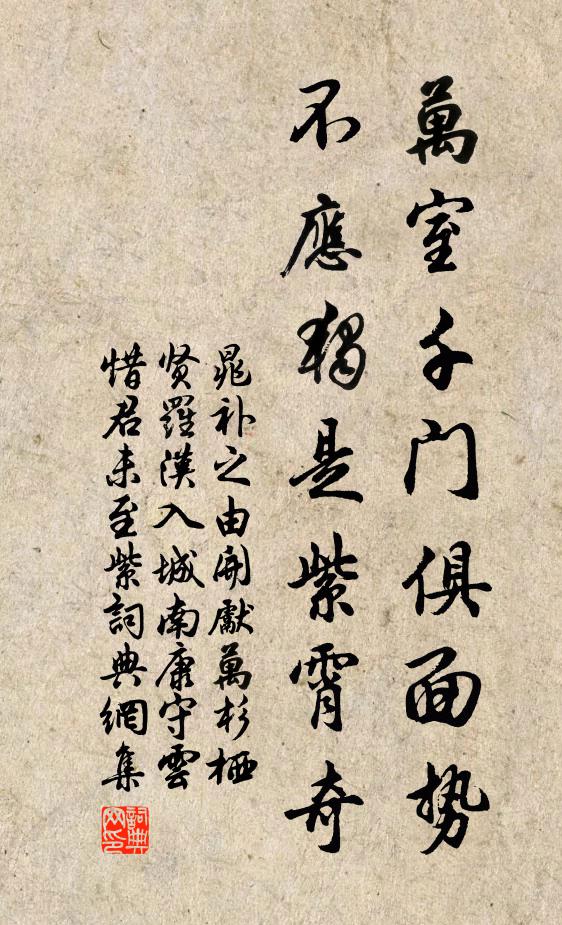 萬室千門俱面势
不應獨是紫霄奇
晁补之由開獻萬杉栖
贤羅漢入城南康守雲
惜君未至紫詞典網集
詞典网印